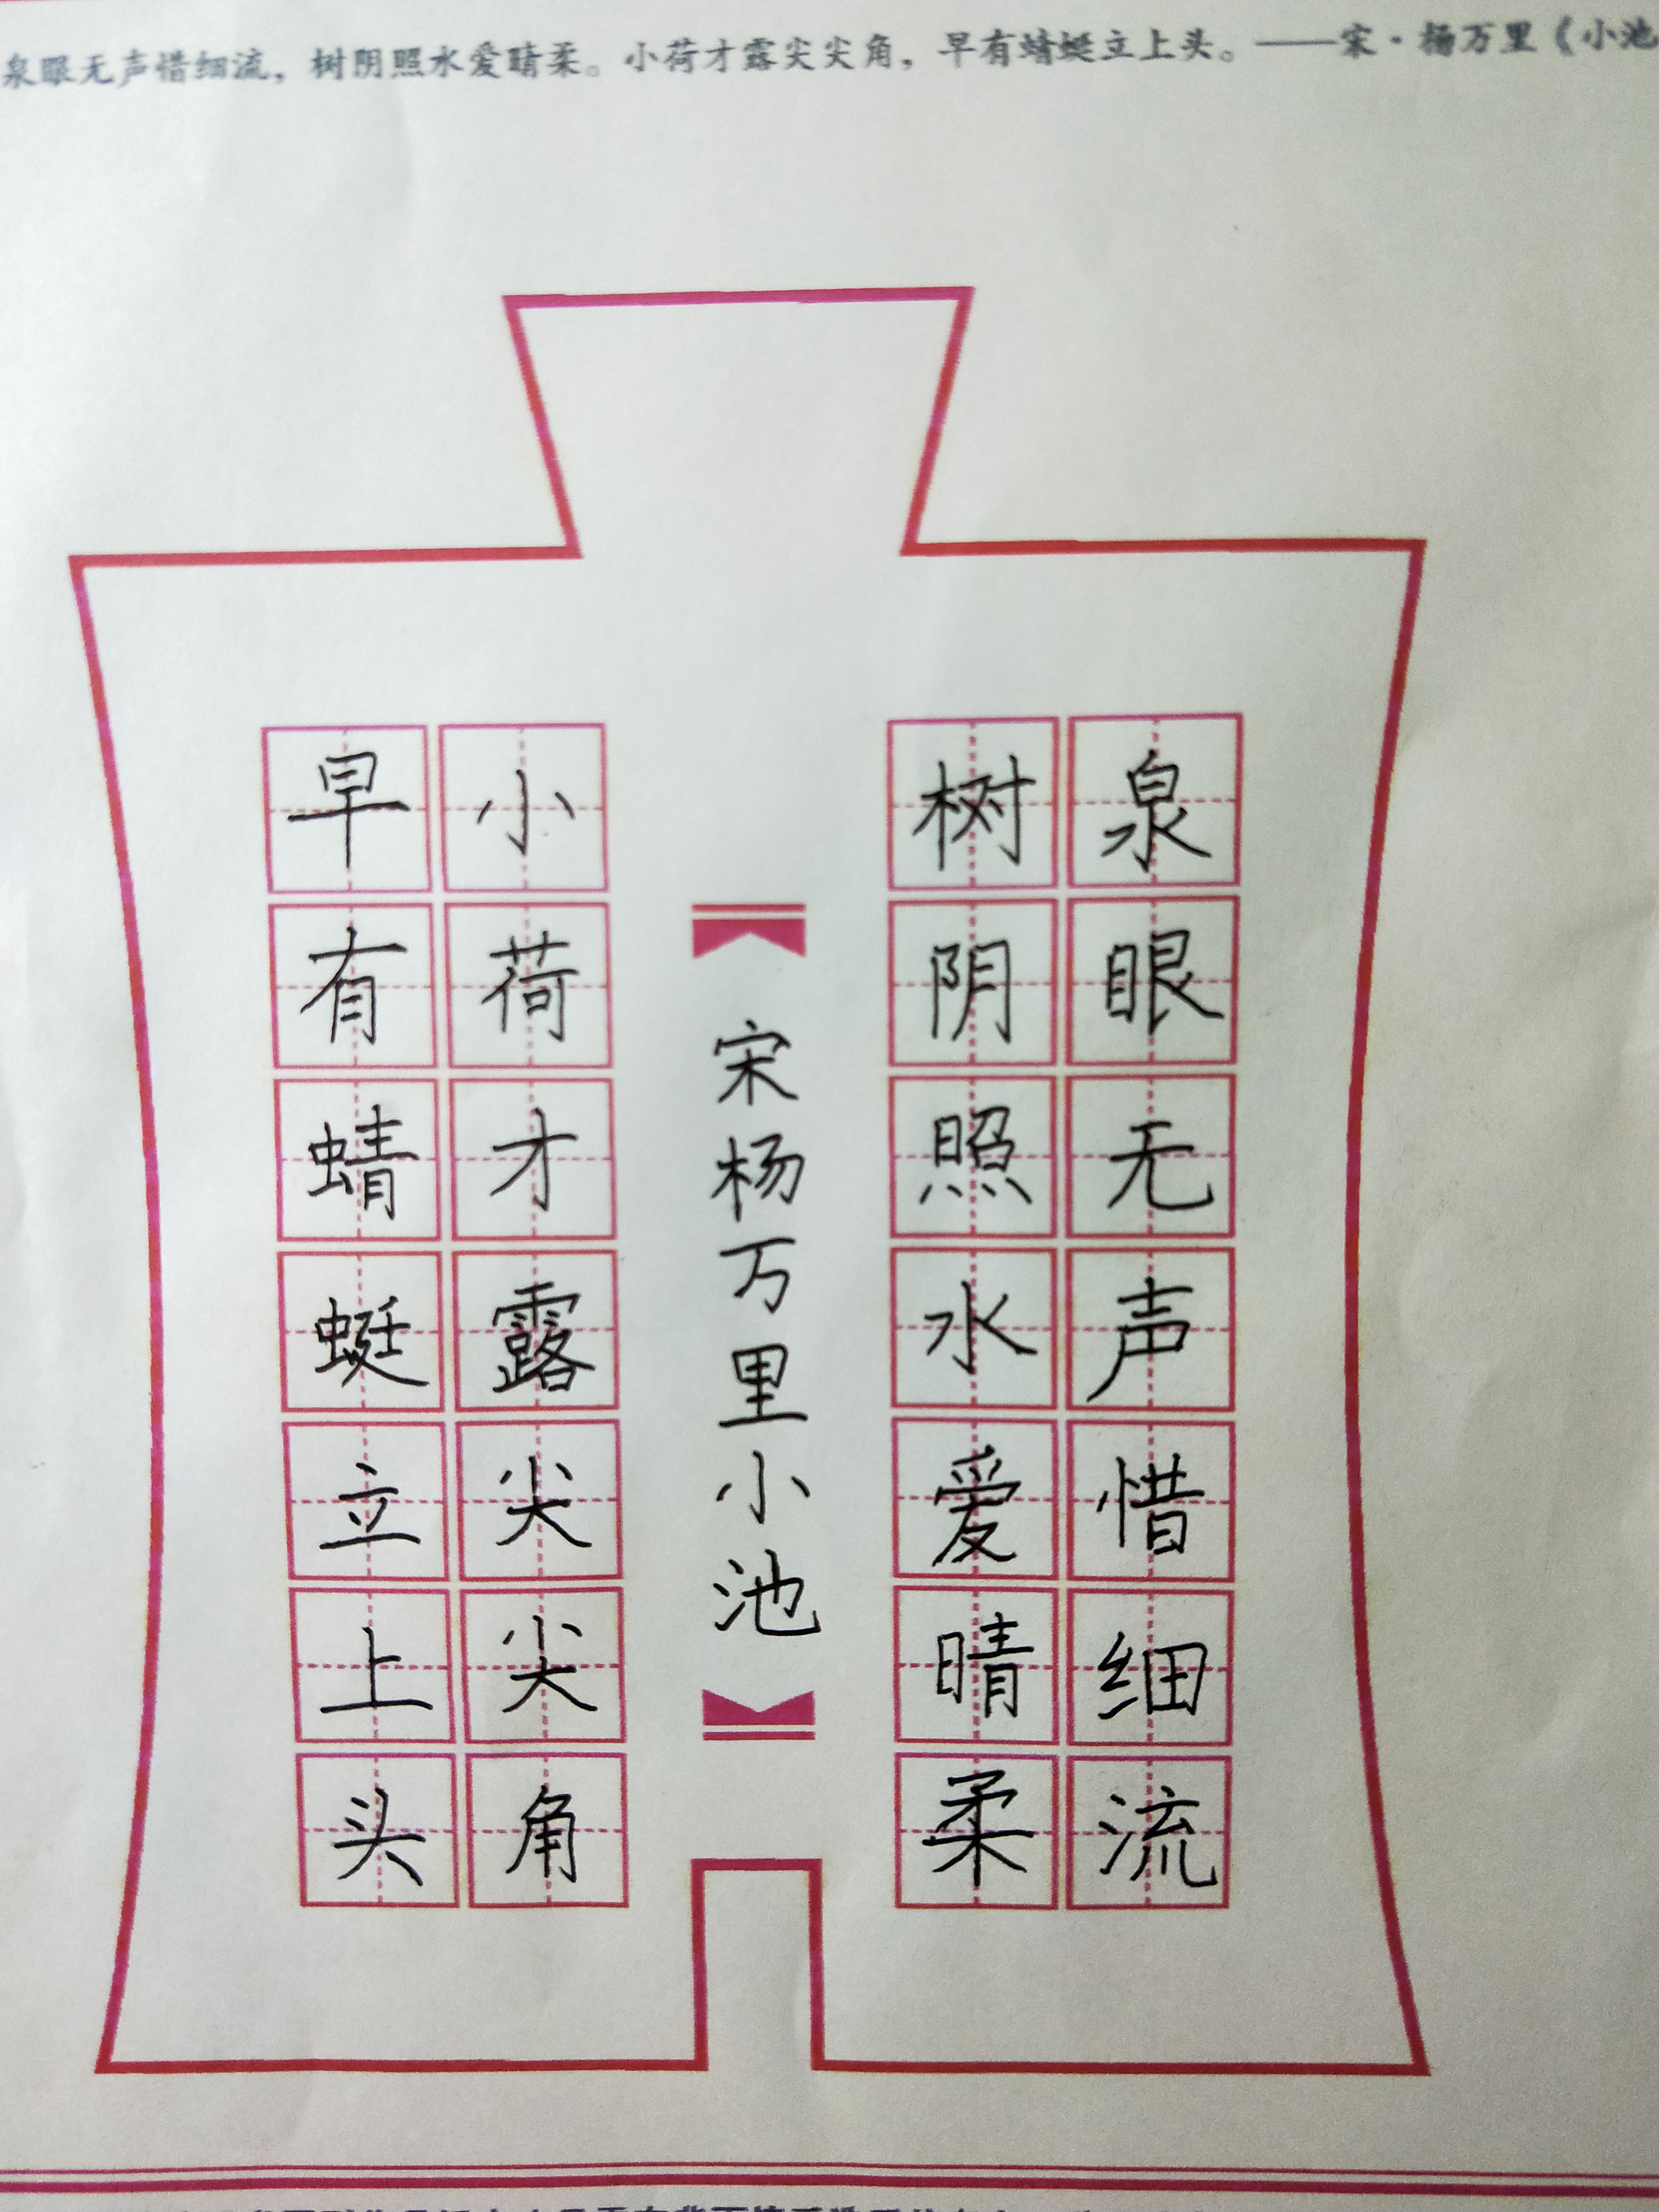 泉眼无声惜细流，树阴照水爱晴柔。小荷才露尖尖角，早有蜻蜓立上头。——宋·杨万里《小池
泉眼无声惜细流
树阴照水爱晴柔
宋杨万里小池
小荷才露尖尖角
早有蜻蜓立上头